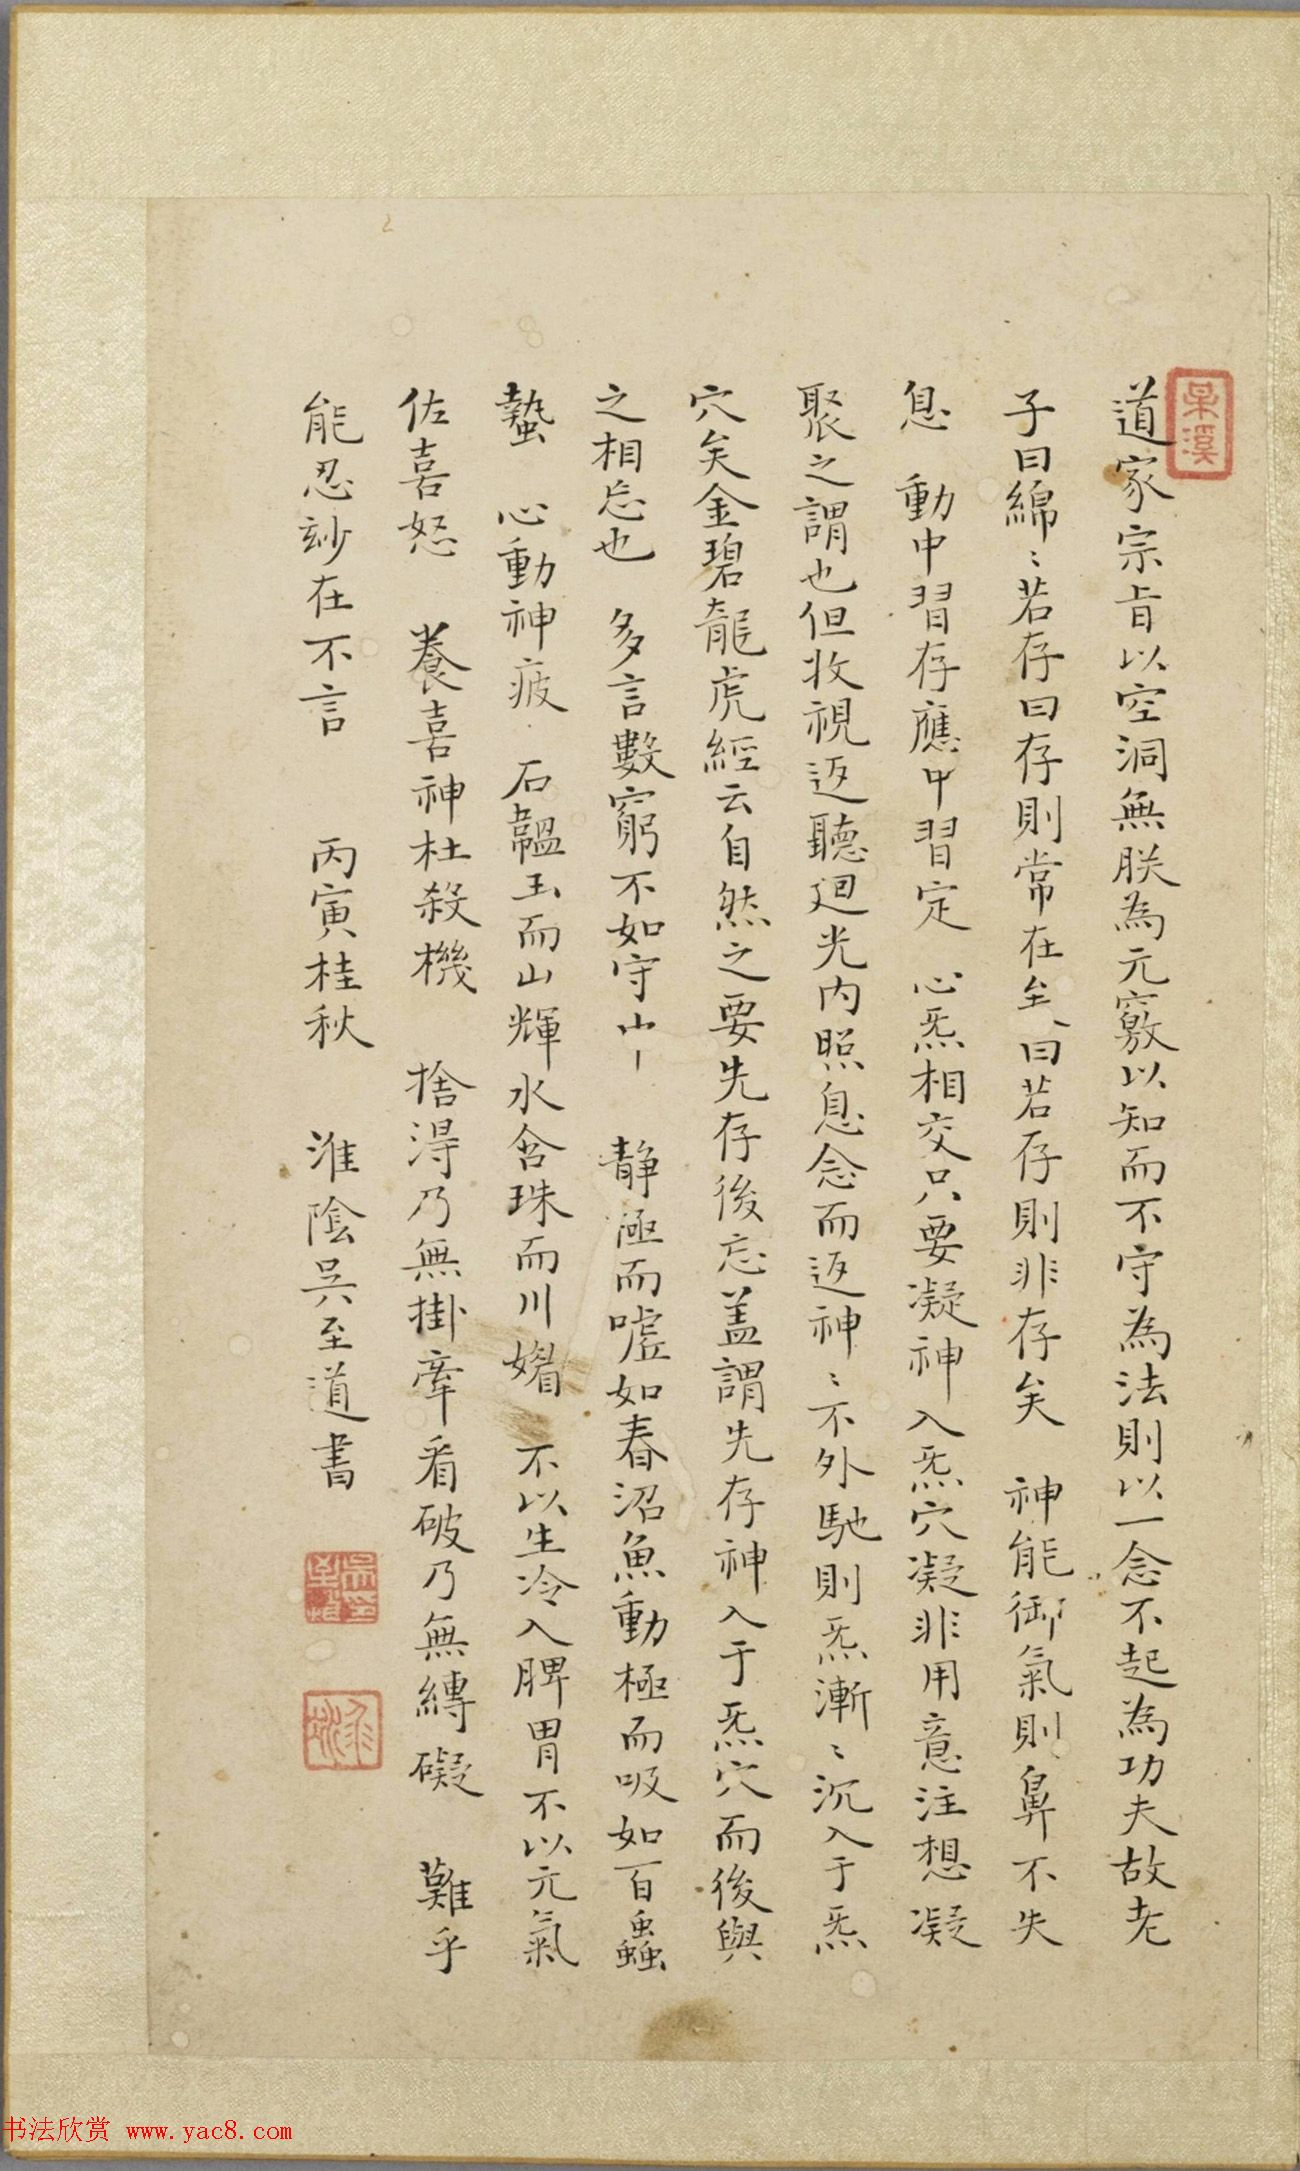 道家宗旨以空洞無朕為元竅以知而不守為法則以一念不起為功夫故老
子曰綿〻若存曰存則常在矣曰若存則非存矣 神能御氣則鼻不失
息 動中習存應中習定 心炁相交只要凝神入炁穴凝非用意注想凝
聚之謂也但收視返聽廻光內照息念而返神〻不外馳則炁漸〻沉入于炁
穴矣金碧龍虎經云自然之要先存後忘盖謂先存神入于炁穴而後與
之相忘也 多言數窮不如守中 静極而噓如春沼魚動極而吸如百蟲
蟄 心動神疲 石韞玉而山輝水含珠而川媚 不以生冷入脾胃不以元氣
佐喜怒 養喜神杜殺機 捨得乃無掛牽看破乃無縛礙 難乎
能忍玅在不言 丙寅桂秋 淮陰吳至道書
书法欣赏 www.yac8.com